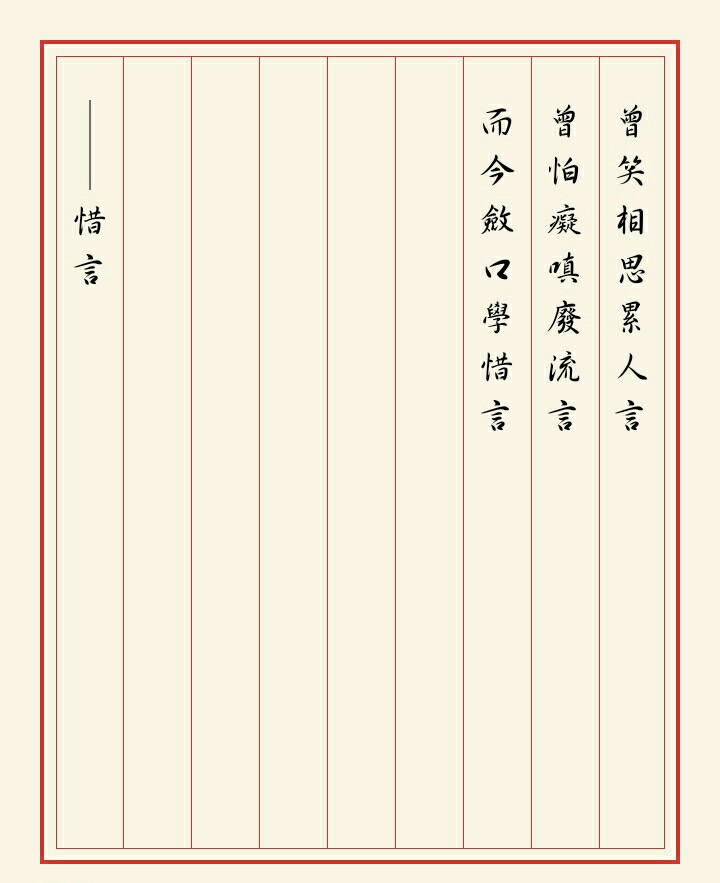 曾笑相思累人言
曾怕癡嗔廢流言
而今斂口學惜言
——惜言